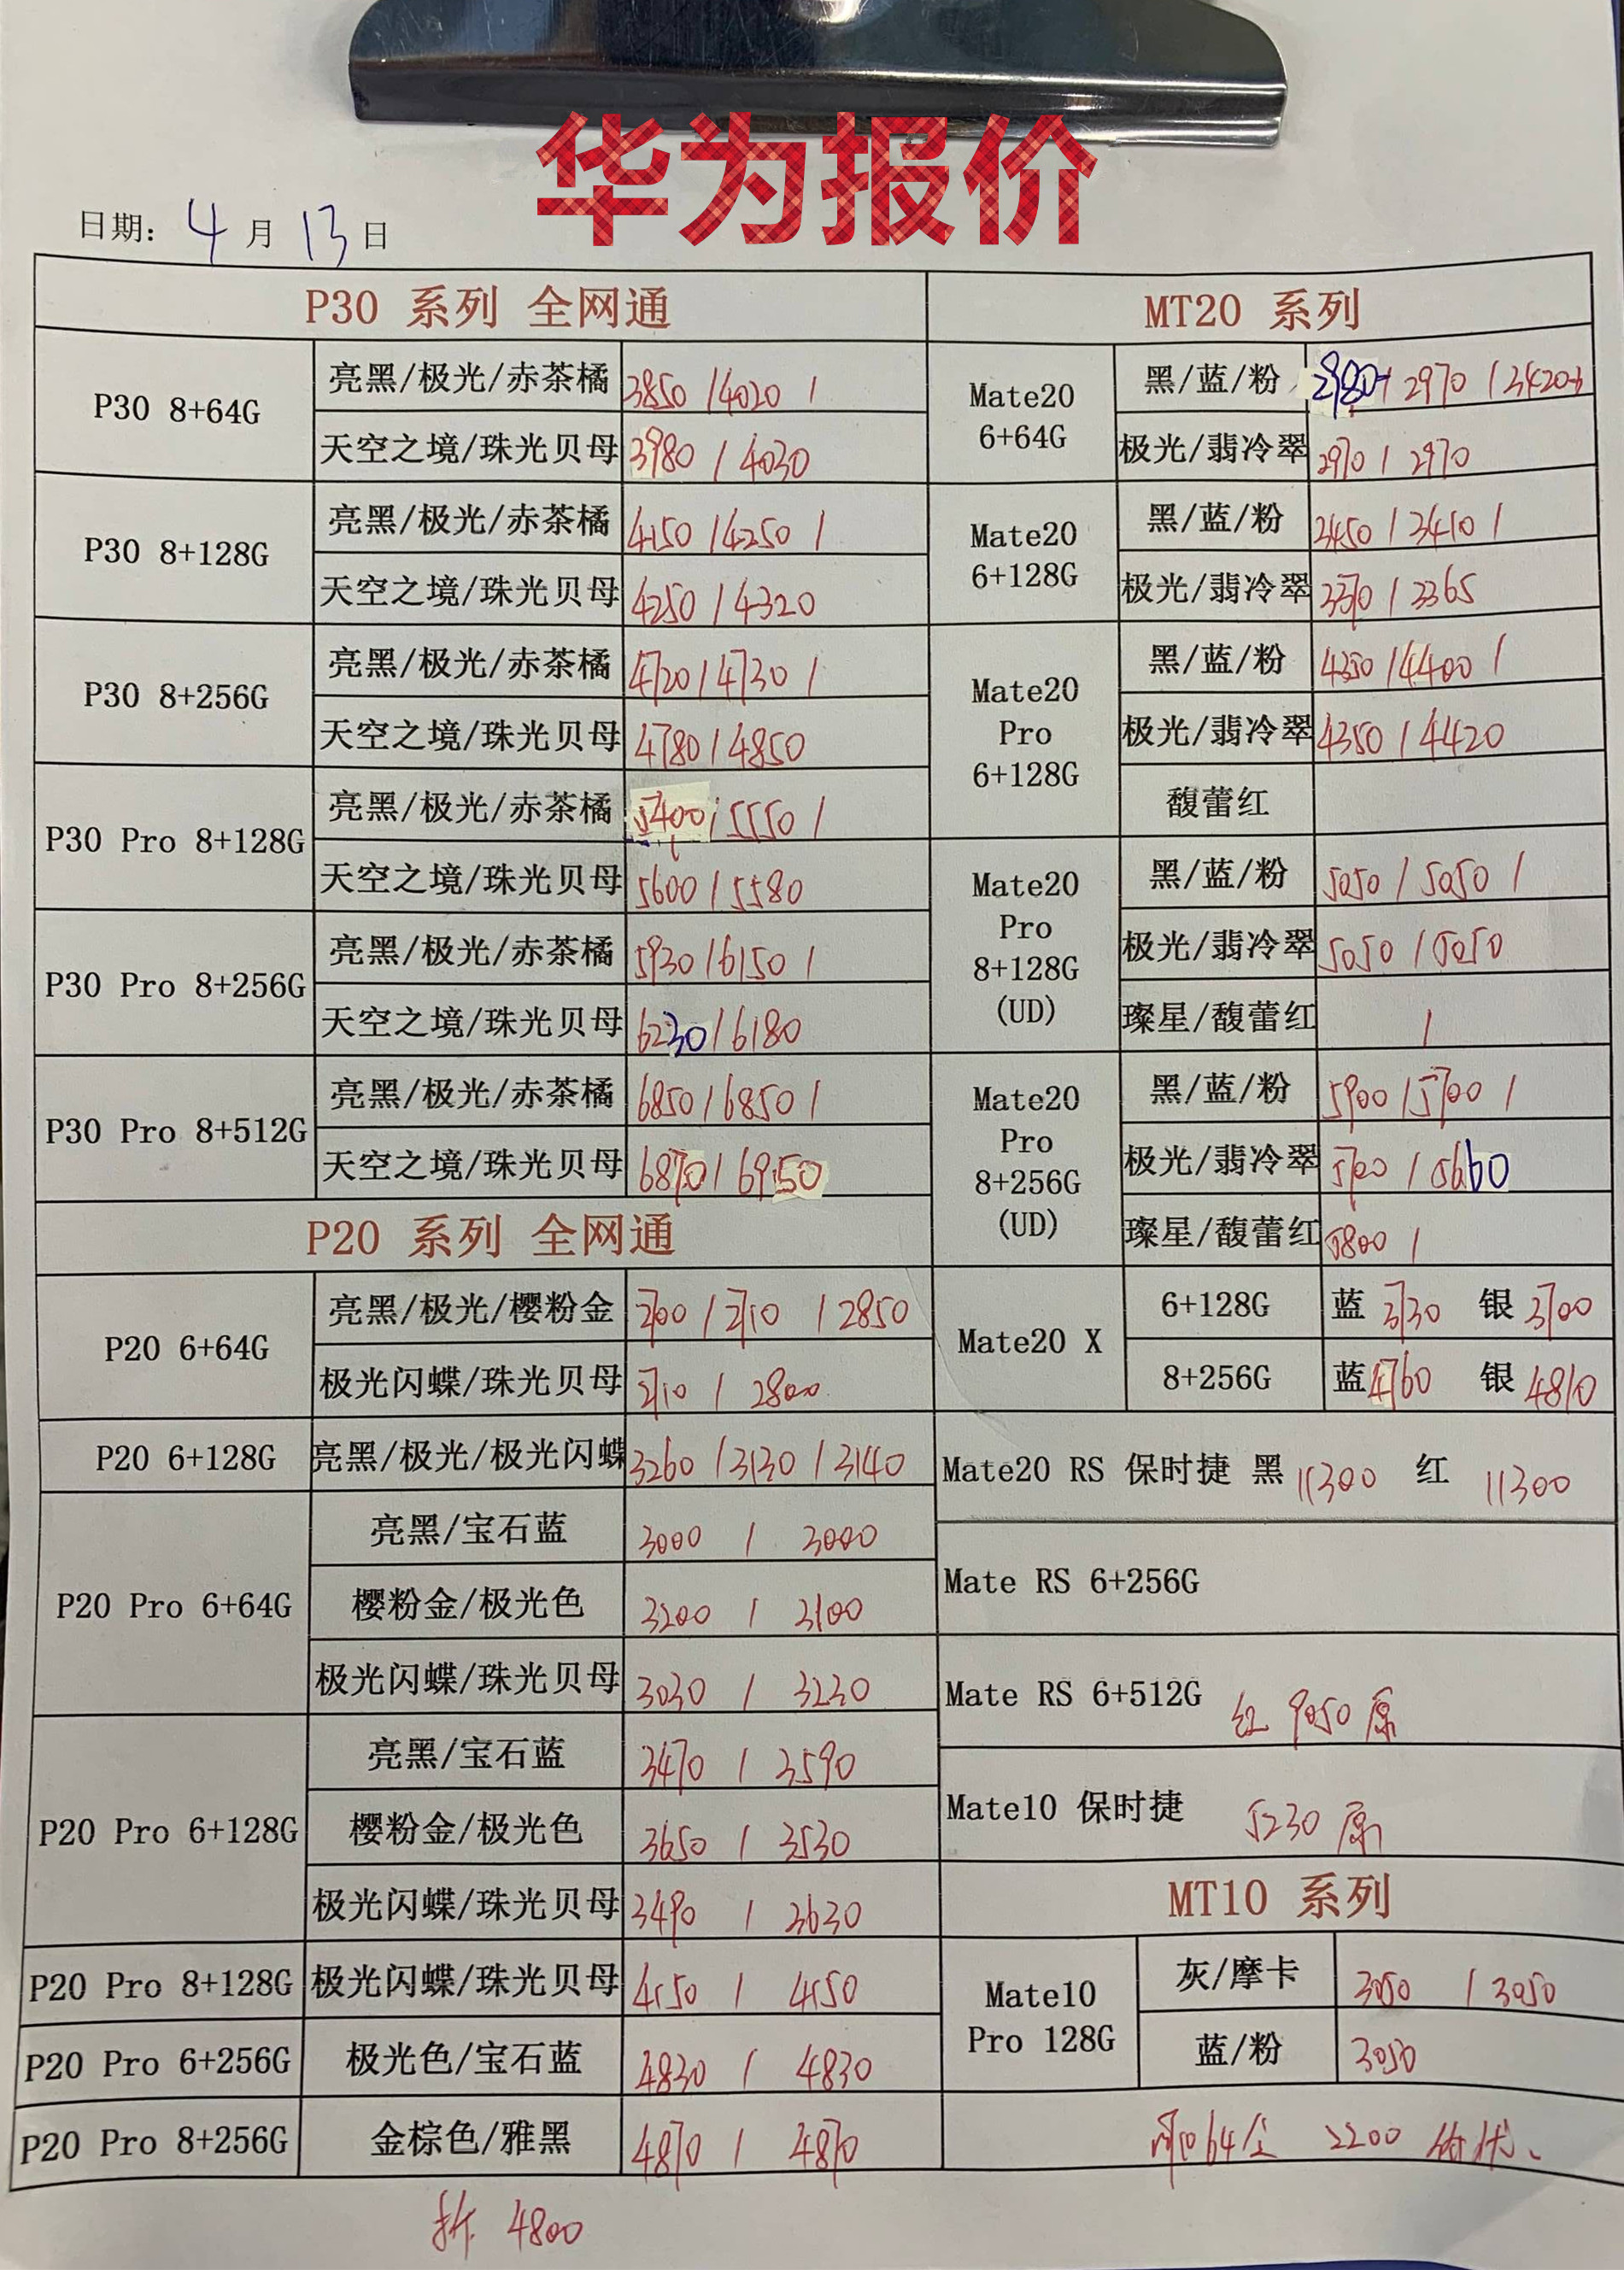 华为报价
日期: 4 月 13 日
P30 系列 全网通
P30 8+64G
亮黑/极光/赤茶橘 3850 / 4020 /
天空之境/珠光贝母 3980 / 4030
P30 8+128G
亮黑/极光/赤茶橘 4150 / 4250 /
天空之境/珠光贝母 4250 / 4320
P30 8+256G
亮黑/极光/赤茶橘 4720 / 4730 /
天空之境/珠光贝母 4780 / 4850
P30 Pro 8+128G
亮黑/极光/赤茶橘 5400 / 5550 /
天空之境/珠光贝母 5600 / 5580
P30 Pro 8+256G
亮黑/极光/赤茶橘 5930 / 6150 /
天空之境/珠光贝母 6230 / 6180
P30 Pro 8+512G
亮黑/极光/赤茶橘 6850 / 6850 /
天空之境/珠光贝母 6870 / 6950
P20 系列 全网通
P20 6+64G
亮黑/极光/樱粉金 2700 / 2710 / 2850
极光闪蝶/珠光贝母 2710 / 2800
P20 6+128G
亮黑/极光/极光闪蝶 3260 / 3130 / 3140
P20 Pro 6+64G
亮黑/宝石蓝 3000 / 3000
樱粉金/极光色 3200 / 3100
极光闪蝶/珠光贝母 3030 / 3230
P20 Pro 6+128G
亮黑/宝石蓝 3470 / 3590
樱粉金/极光色 3650 / 3530
极光闪蝶/珠光贝母 3490 / 3630
P20 Pro 8+128G
极光闪蝶/珠光贝母 4150 / 4150
P20 Pro 6+256G
极光色/宝石蓝 4830 / 4830
P20 Pro 8+256G
金棕色/雅黑 4870 / 4870
拆 4800
MT20 系列
Mate20
6+64G
黑/蓝/粉 2980 / 2970 / 3420
极光/翡冷翠 2970 / 2970
Mate20
6+128G
黑/蓝/粉 3450 / 3410 /
极光/翡冷翠 3370 / 3365
Mate20
Pro
6+128G
黑/蓝/粉 4350 / 4400 /
极光/翡冷翠 4350 / 4420
馥蕾红
Mate20
Pro
8+128G
(UD)
黑/蓝/粉 5050 / 5050 /
极光/翡冷翠 5050 / 5050
璨星/馥蕾红 /
Mate20
Pro
8+256G
(UD)
黑/蓝/粉 5900 / 5700 /
极光/翡冷翠 5700 / 5660
璨星/馥蕾红 5800 /
Mate20 X
6+128G 蓝 3730 银 3700
8+256G 蓝 4760 银 4810
Mate20 RS 保时捷 黑 11300 红 11300
Mate RS 6+256G
Mate RS 6+512G 红 9050 原
Mate10 保时捷 5230 原
MT10 系列
Mate10
Pro 128G
灰/摩卡 3050 / 3050
蓝/粉 3050
64 2200